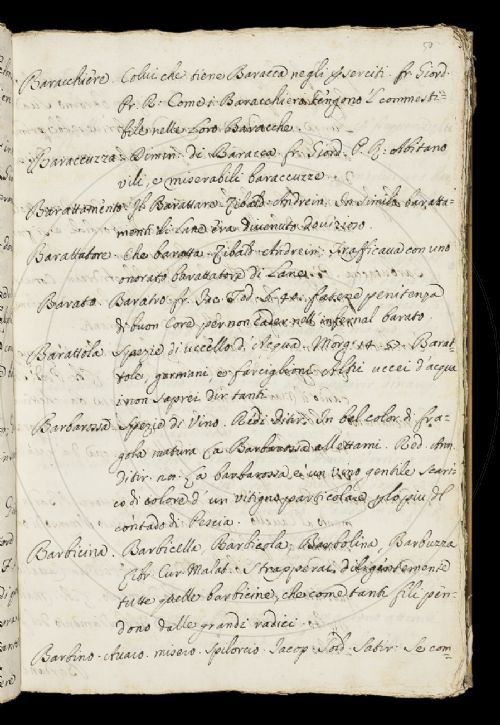 50
Baracchiere. Colui che tiene Baracca negli eserciti. fr. Giord.
Pr. R. Come i Baracchieri tengono 'l commesti-
bile nelle loro Baracche.
Baraccuzza. Dimin. di Baracca fr. Giord. P. R. Abitano
vili, e miserabili baraccuzze.
Barattamento. Il Barattare Zibald. Andrein. In simili baratta-
menti di Lane era divenuto dovizioso.
Barattatore. Che baratta. Zibald. Andrein. Trafficava con uno
onorato barattatore di Lane.
Barato. Baratro. fr. Iac. Tod. fatene penitenza
di buon Core per non cader nell' infernal barato.
Barattola. Spezie di uccello d'Acqua. Morg. 14. 57. Barat-
tole, germani e farciglioni, e altri uccei d'acqua
i non saprei dir tanti.
Barbarossa. Spezie di Vino. Redi ditir. In bel color di fra-
gola matura La Barbarossa allettami. Red. Ann.
ditir. La barbarossa è un vino gentile scari-
co di colore d' un vitigno particolare plo piu del
contado di Pescia.
Barbicina. Barbicella, Barbicola, Barbolina, Barbuzza
Libr. Cur. Malat. Strapperai diligentemente
tutte quelle barbicine, che come tanti fili pen-
dono dalle grandi radici.
Barbino. Avaro. misero. Spilorcio. Iacop. Sold. Satir. Se com